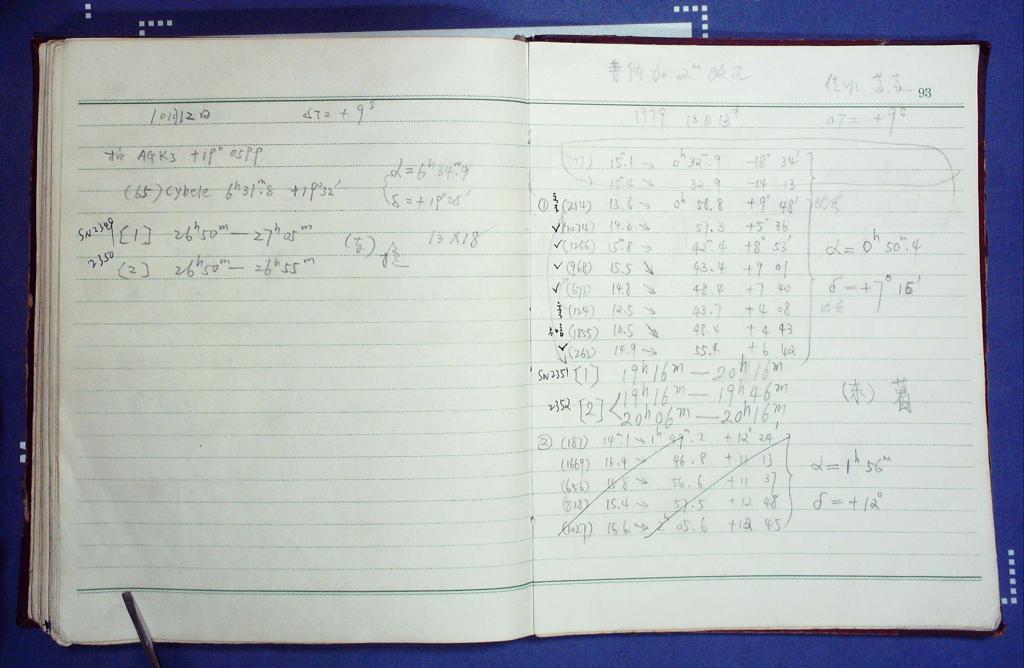 10月12日 ΔT = + 9ˢ
AGK3 +19° 0599
(65) Cybele 6ʰ31ᵐ.8 +19°32′
α = 6ʰ 34ᵐ.9
δ = +19°25′
SN2349 [1] 26ʰ50ᵐ — 27ʰ05ᵐ (东) 13×18
2350 [2] 26ʰ50ᵐ — 26ʰ55ᵐ
加 2ᵐ 改正
93
1979 10月13日 ΔT = +9ˢ
15.1 0ʰ 32ᵐ.9 -18° 34′
15.4 32.9 -14 13
① (214) 13.6 0ʰ 58.8 +9° 48′
✓(1074) 14.8 57.3 +5° 36
✓(1256) 15.8 42.4 +8° 53′ α = 0ʰ 50ᵐ.4
✓(968) 15.5 43.4 +9 01
✓(673) 14.8 48.4 +7 40 δ = +7° 15′
(124) 12.5 43.7 +4 08
(1855) 16.5 48.4 +4 43
✓(263) 14.9 55.4 +6 42
SN2351 [1] 19ʰ16ᵐ — 20ʰ16ᵐ
2352 [2] 19ʰ16ᵐ — 19ʰ46ᵐ (东) 葛
20ʰ06ᵐ — 20ʰ16ᵐ
② (187) 14ᵐ.1 1ʰ 47ᵐ.2 +12° 24′
(1669) 16.4 46.8 +11 13 α = 1ʰ 56ᵐ
(656) 56.6 +11 37
(828) 15.4 57.5 +12 48 δ = +12°
(1027) 16.6 2ʰ 05.6 +12 45